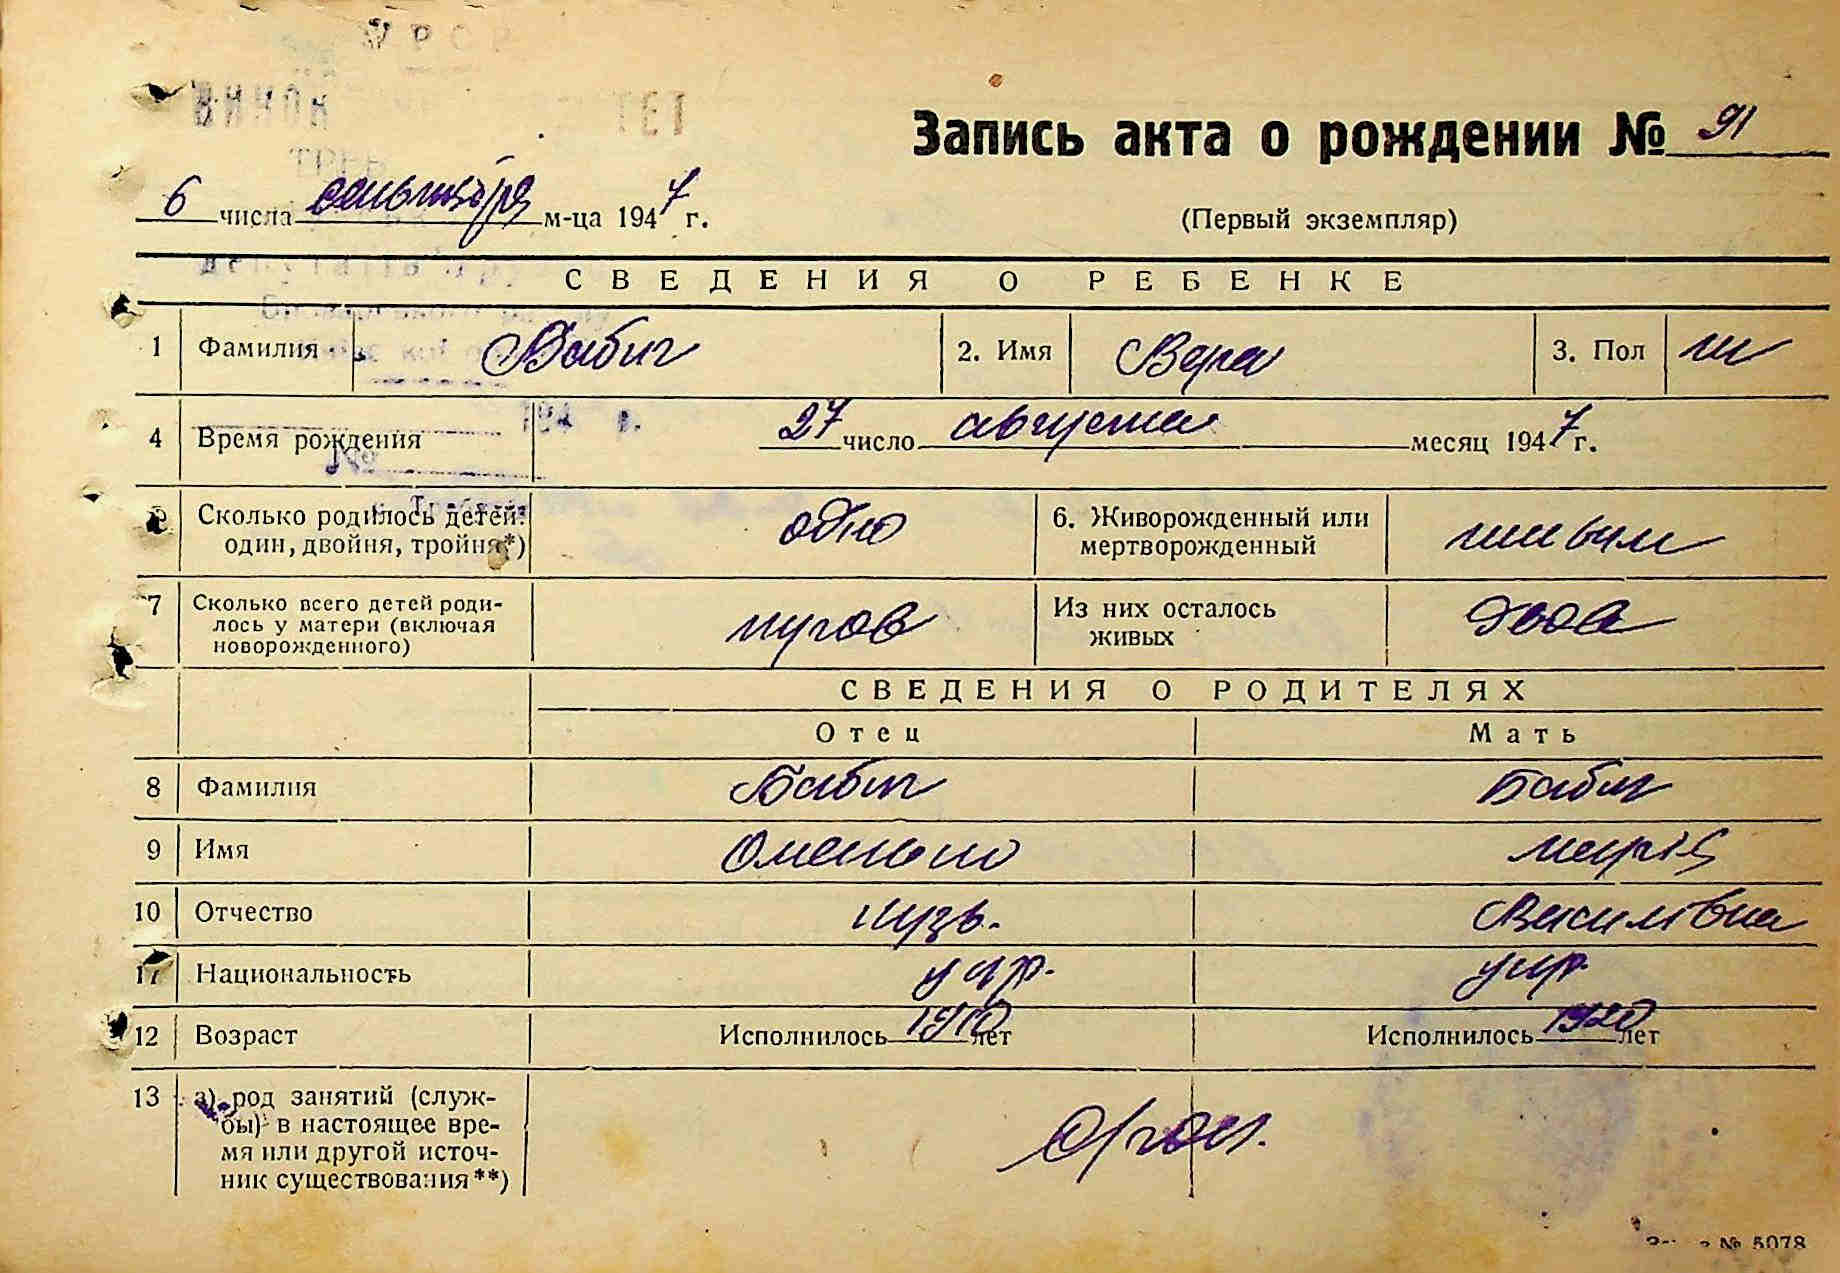 Запись акта о рождении № 91
6 числа сентября м-ца 1947 г.
(Первый экземпляр)
СВЕДЕНИЯ О РЕБЕНКЕ
1 Фамилия Бабич 2. Имя Вера 3. Пол ж
4 Время рождения 27 число августа месяц 1947 г.
Сколько родилось детей: один, двойня, тройня*) одно 6. Живорожденный или мертворожденный живым
7 Сколько всего детей роди-
лось у матери (включая
новорожденного)
Из них осталось
живых
два
СВЕДЕНИЯ О РОДИТЕЛЯХ
Отец Мать
8 Фамилия Бабич Бабич
9 Имя Омельяно Мария
10 Отчество Васильевна
Национальность укр. укр.
12 Возраст Исполнилось 1910 лет Исполнилось 1920 лет
13 а) род занятий (служ-
бы) в настоящее вре-
мя или другой источ-
ник существования**)
№ 5078